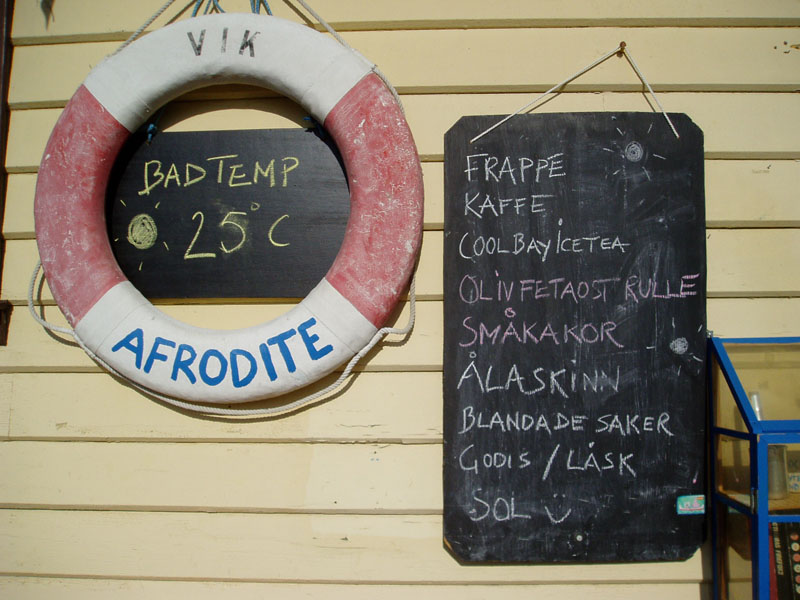 VIK
BADTEMP
25°C
AFRODITE
FRAPPE
KAFFE
COOLBAY ICETEA
OLIVFETAOST RULLE
SMÅKAKOR
ÅLASKINN
BLANDADE SAKER
GODIS / LÅSK
SOL